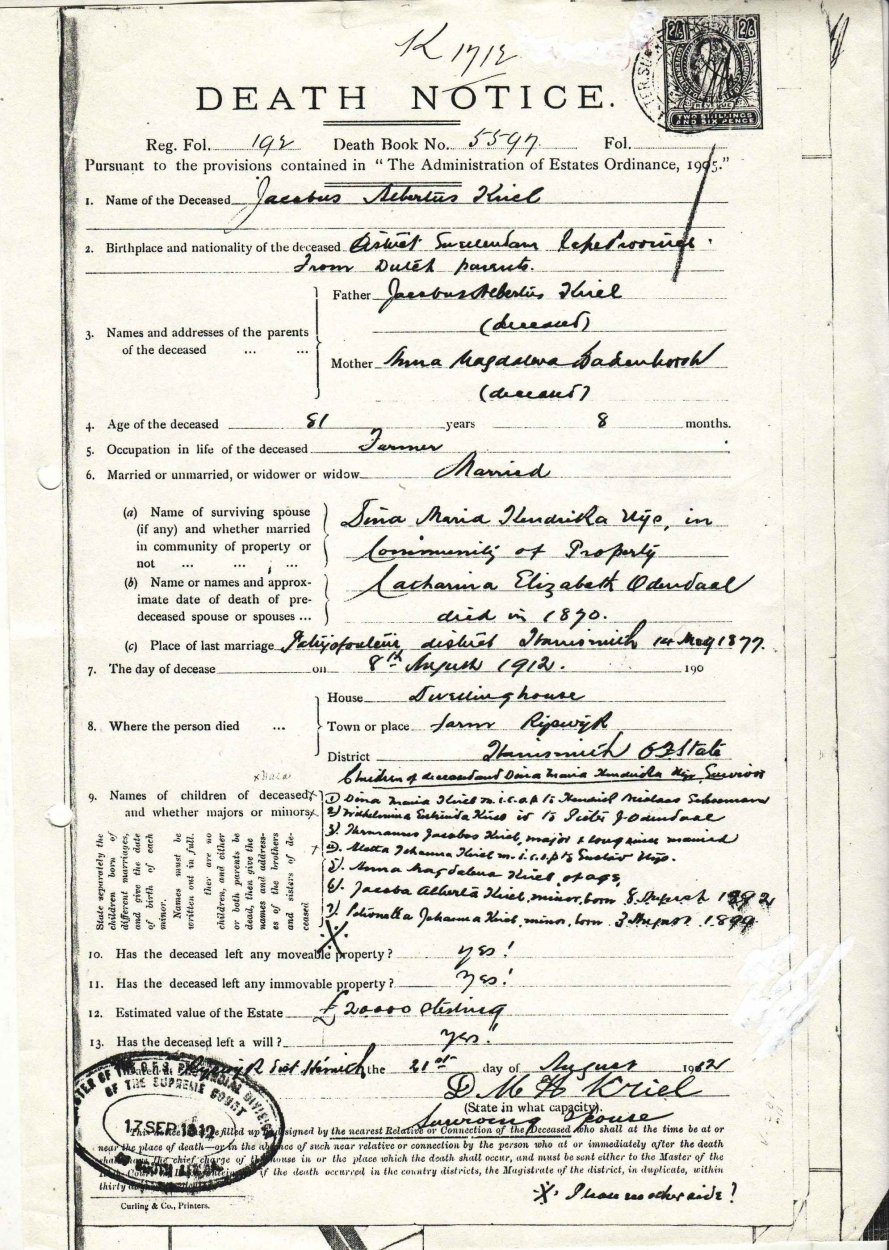 K 1712
2/6 2/6
TWO SHILLINGS
AND SIX PENCE
DEATH NOTICE.
Reg. Fol. 192 Death Book No. 5597 Fol.
Pursuant to the provisions contained in "The Administration of Estates Ordinance, 1905."
1. Name of the Deceased Jacobus Albertus Kriel
2. Birthplace and nationality of the deceased District Swellendam Cape Province.
From Dutch parents.
3. Names and addresses of the parents
of the deceased ... ...
Father Jacobus Albertus Kriel
(deceased)
Mother Anna Magdalena Badenhorst
(deceased)
4. Age of the deceased 81 years 8 months.
5. Occupation in life of the deceased Farmer
6. Married or unmarried, or widower or widow Married
(a) Name of surviving spouse
(if any) and whether married
in community of property or
not ... ... ...
Dina Maria Hendrika Uys, in
Community of Property
(b) Name or names and approx-
imate date of death of pre-
deceased spouse or spouses ...
Catharina Elizabeth Odendaal
died in 1870.
(c) Place of last marriage district Harrismith 14 May 1877.
7. The day of decease on 8th August 1912. 190
8. Where the person died ...
House Dwellinghouse
Town or place farm Ryswyk
District Harrismith OFState
Children of deceased and Dina Maria Hendrika Uys Survivor
9. Names of children of deceased
and whether majors or minors
State separately the
children born of
different marriages,
and give the date
of birth of each
minor.
Names must be
written out in full.
If there are no
children, and either
or both parents be
dead, then give the
names and address-
es of the brothers
and sisters of de-
ceased
1) Dina Maria Kriel m. i. c. o. p. to Hendrik Nicolaas Schoeman
2) Wilhelmina Kriel to Pieter J. Odendaal
3) Hermanus Jacobus Kriel, major & married
4) Metta Johanna Kriel m. i. c. o. p. to Uys.
5) Anna Magdalena Kriel, of age,
6) Jacoba Alberta Kriel, minor, born 8 August 1892
7) Petronella Johanna Kriel, minor, born 3 August 1899
10. Has the deceased left any moveable property? yes!
11. Has the deceased left any immovable property? Yes!
12. Estimated value of the Estate £20000 sterling
13. Has the deceased left a will? yes!
Dated at Ryswyk Dist Hsmith the 21st day of August 1912
D M H Kriel
(State in what capacity).
Surviving Spouse
MASTER OF THE O.F.S. PROVINCIAL DIVISION
OF THE SUPREME COURT
17 SEP 1912
OF SOUTH AFRICA
This notice to be filled up and signed by the nearest Relative or Connection of the Deceased who shall at the time be at or
near the place of death—or in the absence of such near relative or connection by the person who at or immediately after the death
shall have the chief charge of the house in or the place which the death shall occur, and must be sent either to the Master of the
if the death occurred in the country districts, the Magistrate of the district, in duplicate, within
thirty days
Curling & Co., Printers.
other side!